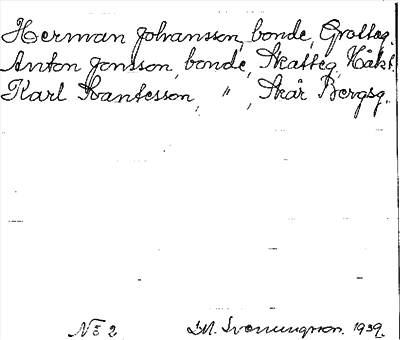 Herman Johansson, bonde, Grolteg.
Anton Jonsson, bonde, Skatteg, Håkt.
Karl Svantesson, ", Skår Bergsg.
No 2 1939.